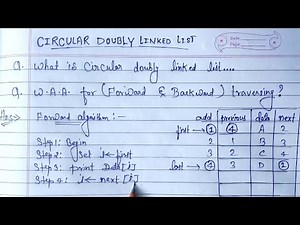 CIRCULAR DOUBLY LINKED LIST
Date
Page
Q. What is Circular doubly linked list....
Q. W.A.A. for (Forward & Backward) traversing?
Ans:- Forward algorithm:-
add previous data next
first→ 1 4 A 2
Step 1: Begin
2 1 B 3
Step 2: Set i←first
3 2 C 4
Step 3: print Data[i]
last→ 4 3 D 1
Step 4: i← next [i]